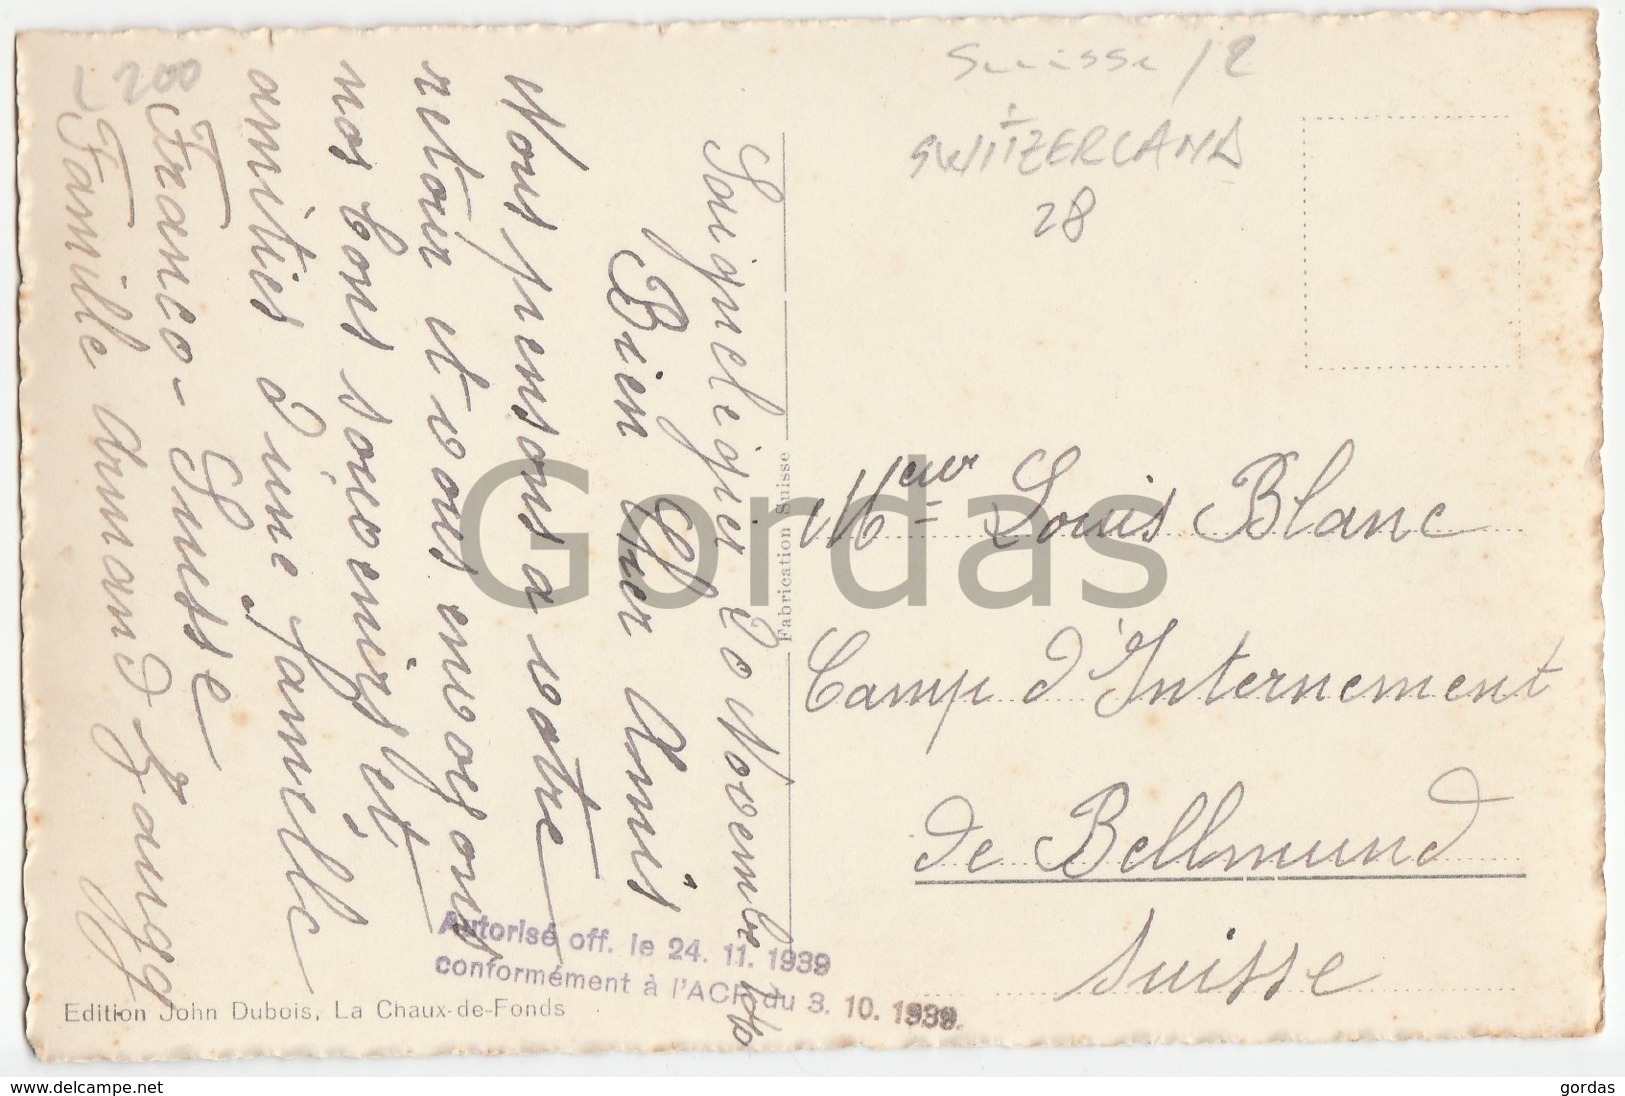 Suisse / 2
SWITZERLAND
28
200
Saignelegier 20 Novembre 1940
Bien Cher Amis
Nous pensons a votre
retour et vous envoyons
nos bons souvenirs et
amitiés d'une famille
Franco-Suisse
Famille Armand Zaugg
Meur Louis Blanc
Camp d'Internement
de Bellmund
Suisse
Fabrication Suisse
Autorisé off. le 24. 11. 1939
conformément à l'ACF du 3. 10. 1939.
Edition John Dubois, La Chaux-de-Fonds
Gordas
www.delcampe.net
gordas